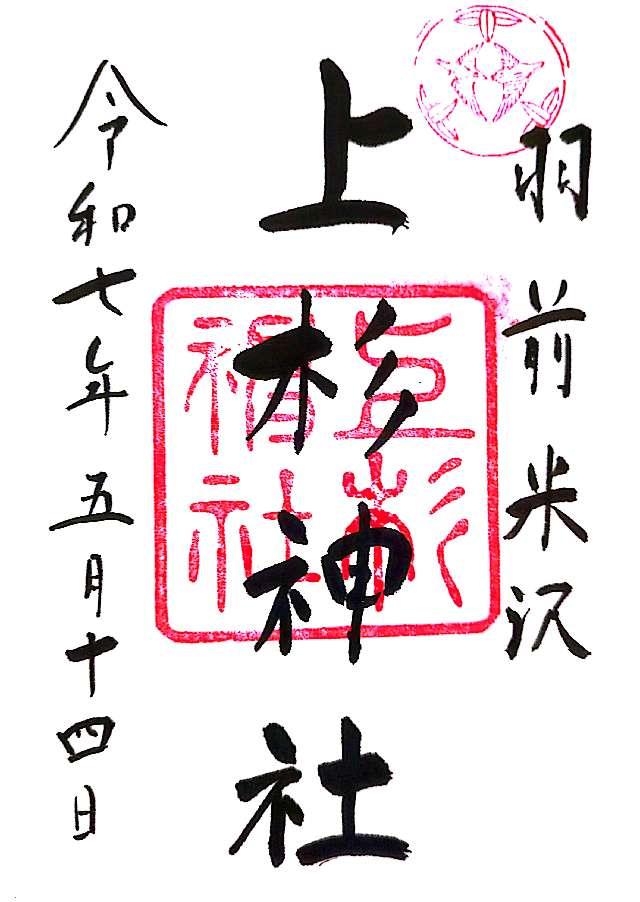 羽前米沢
上杉神社
令和七年五月十四日